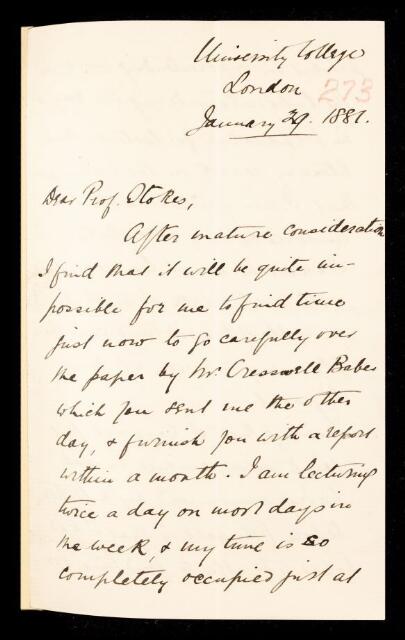 University College
London
273
January 29. 1881.
Dear Prof. Stokes,
After mature consideration
I find that it will be quite im-
possible for me to find time
just now to go carefully over
the paper by Mr. Cresswell Baber
which you sent me the other
day, & furnish you with a report
within a month. I am lecturing
twice a day on most days in
the week, & my time is so
completely occupied just at